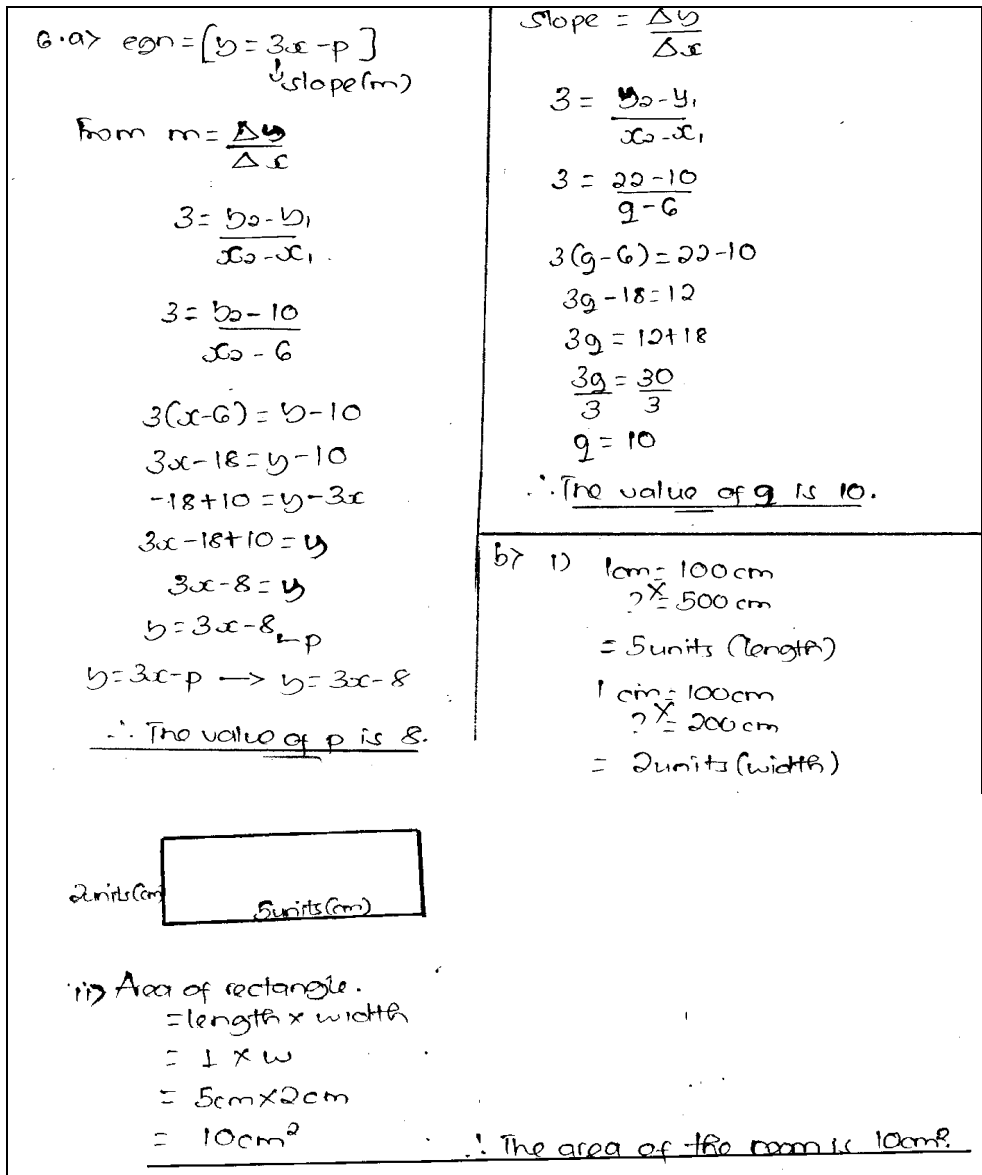 6.a> eqn = [y = 3x - p]
↓ slope(m)
From m = Δy
Δx
3 = y2 - y1
x2 - x1.
3 = y2 - 10
x2 - 6
3(x-6) = y - 10
3x - 18 = y - 10
-18 + 10 = y - 3x
3x - 18 + 10 = y
3x - 8 = y
y = 3x - 8 ← p
y = 3x - p → y = 3x - 8
∴ The value of p is 8.
Slope = Δy
Δx
3 = y2 - y1
x2 - x1
3 = 22 - 10
q - 6
3(q-6) = 22 - 10
3q - 18 = 12
3q = 12 + 18
3q = 30
3 3
q = 10
∴ The value of q is 10.
b> i) 1cm = 100 cm
? = 500 cm
= 5 units (length)
1 cm = 100cm
? = 200 cm
= 2 units (width)
2units(cm)
5units(cm)
ii> Area of rectangle.
= length x width
= l x w
= 5cm x 2cm
= 10cm²
∴ The area of the room is 10cm².